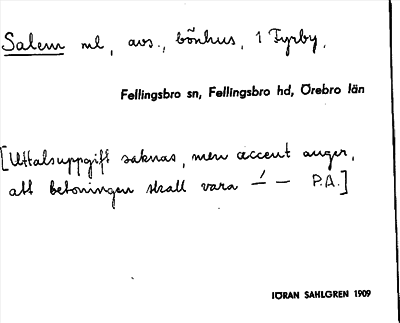 Salem ml, avs., bönhus, 1 Fyrby.
Fellingsbro sn, Fellingsbro hd, Örebro län
[Uttalsuppgift saknas, men accent anger,
att betoningen skall vara –́ – P.A.]
IÖRAN SAHLGREN 1909